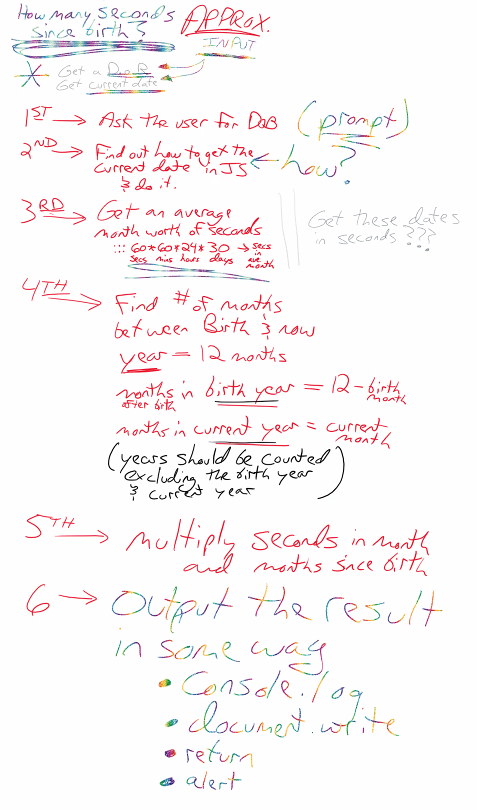 How many seconds
since birth?
APPROX.
INPUT
Get a DoB
Get current date
1ST → Ask the user for DoB
(prompt)
2ND → Find out how to get the
current date in JS
& do it.
← how?
3RD → Get an average
month worth of seconds
::: 60*60*24*30 → secs
in
ave
month
secs mins hours days
Get these dates
in seconds???
4TH → Find # of months
between Birth & now
year = 12 months
months in birth year = 12 - birth
after birth
month
months in current year = current
month
(years should be counted
excluding the birth year
& current year)
5TH → multiply seconds in month
and months since birth
6 → Output the result
in some way
• Console.log
• document.write
• return
• alert